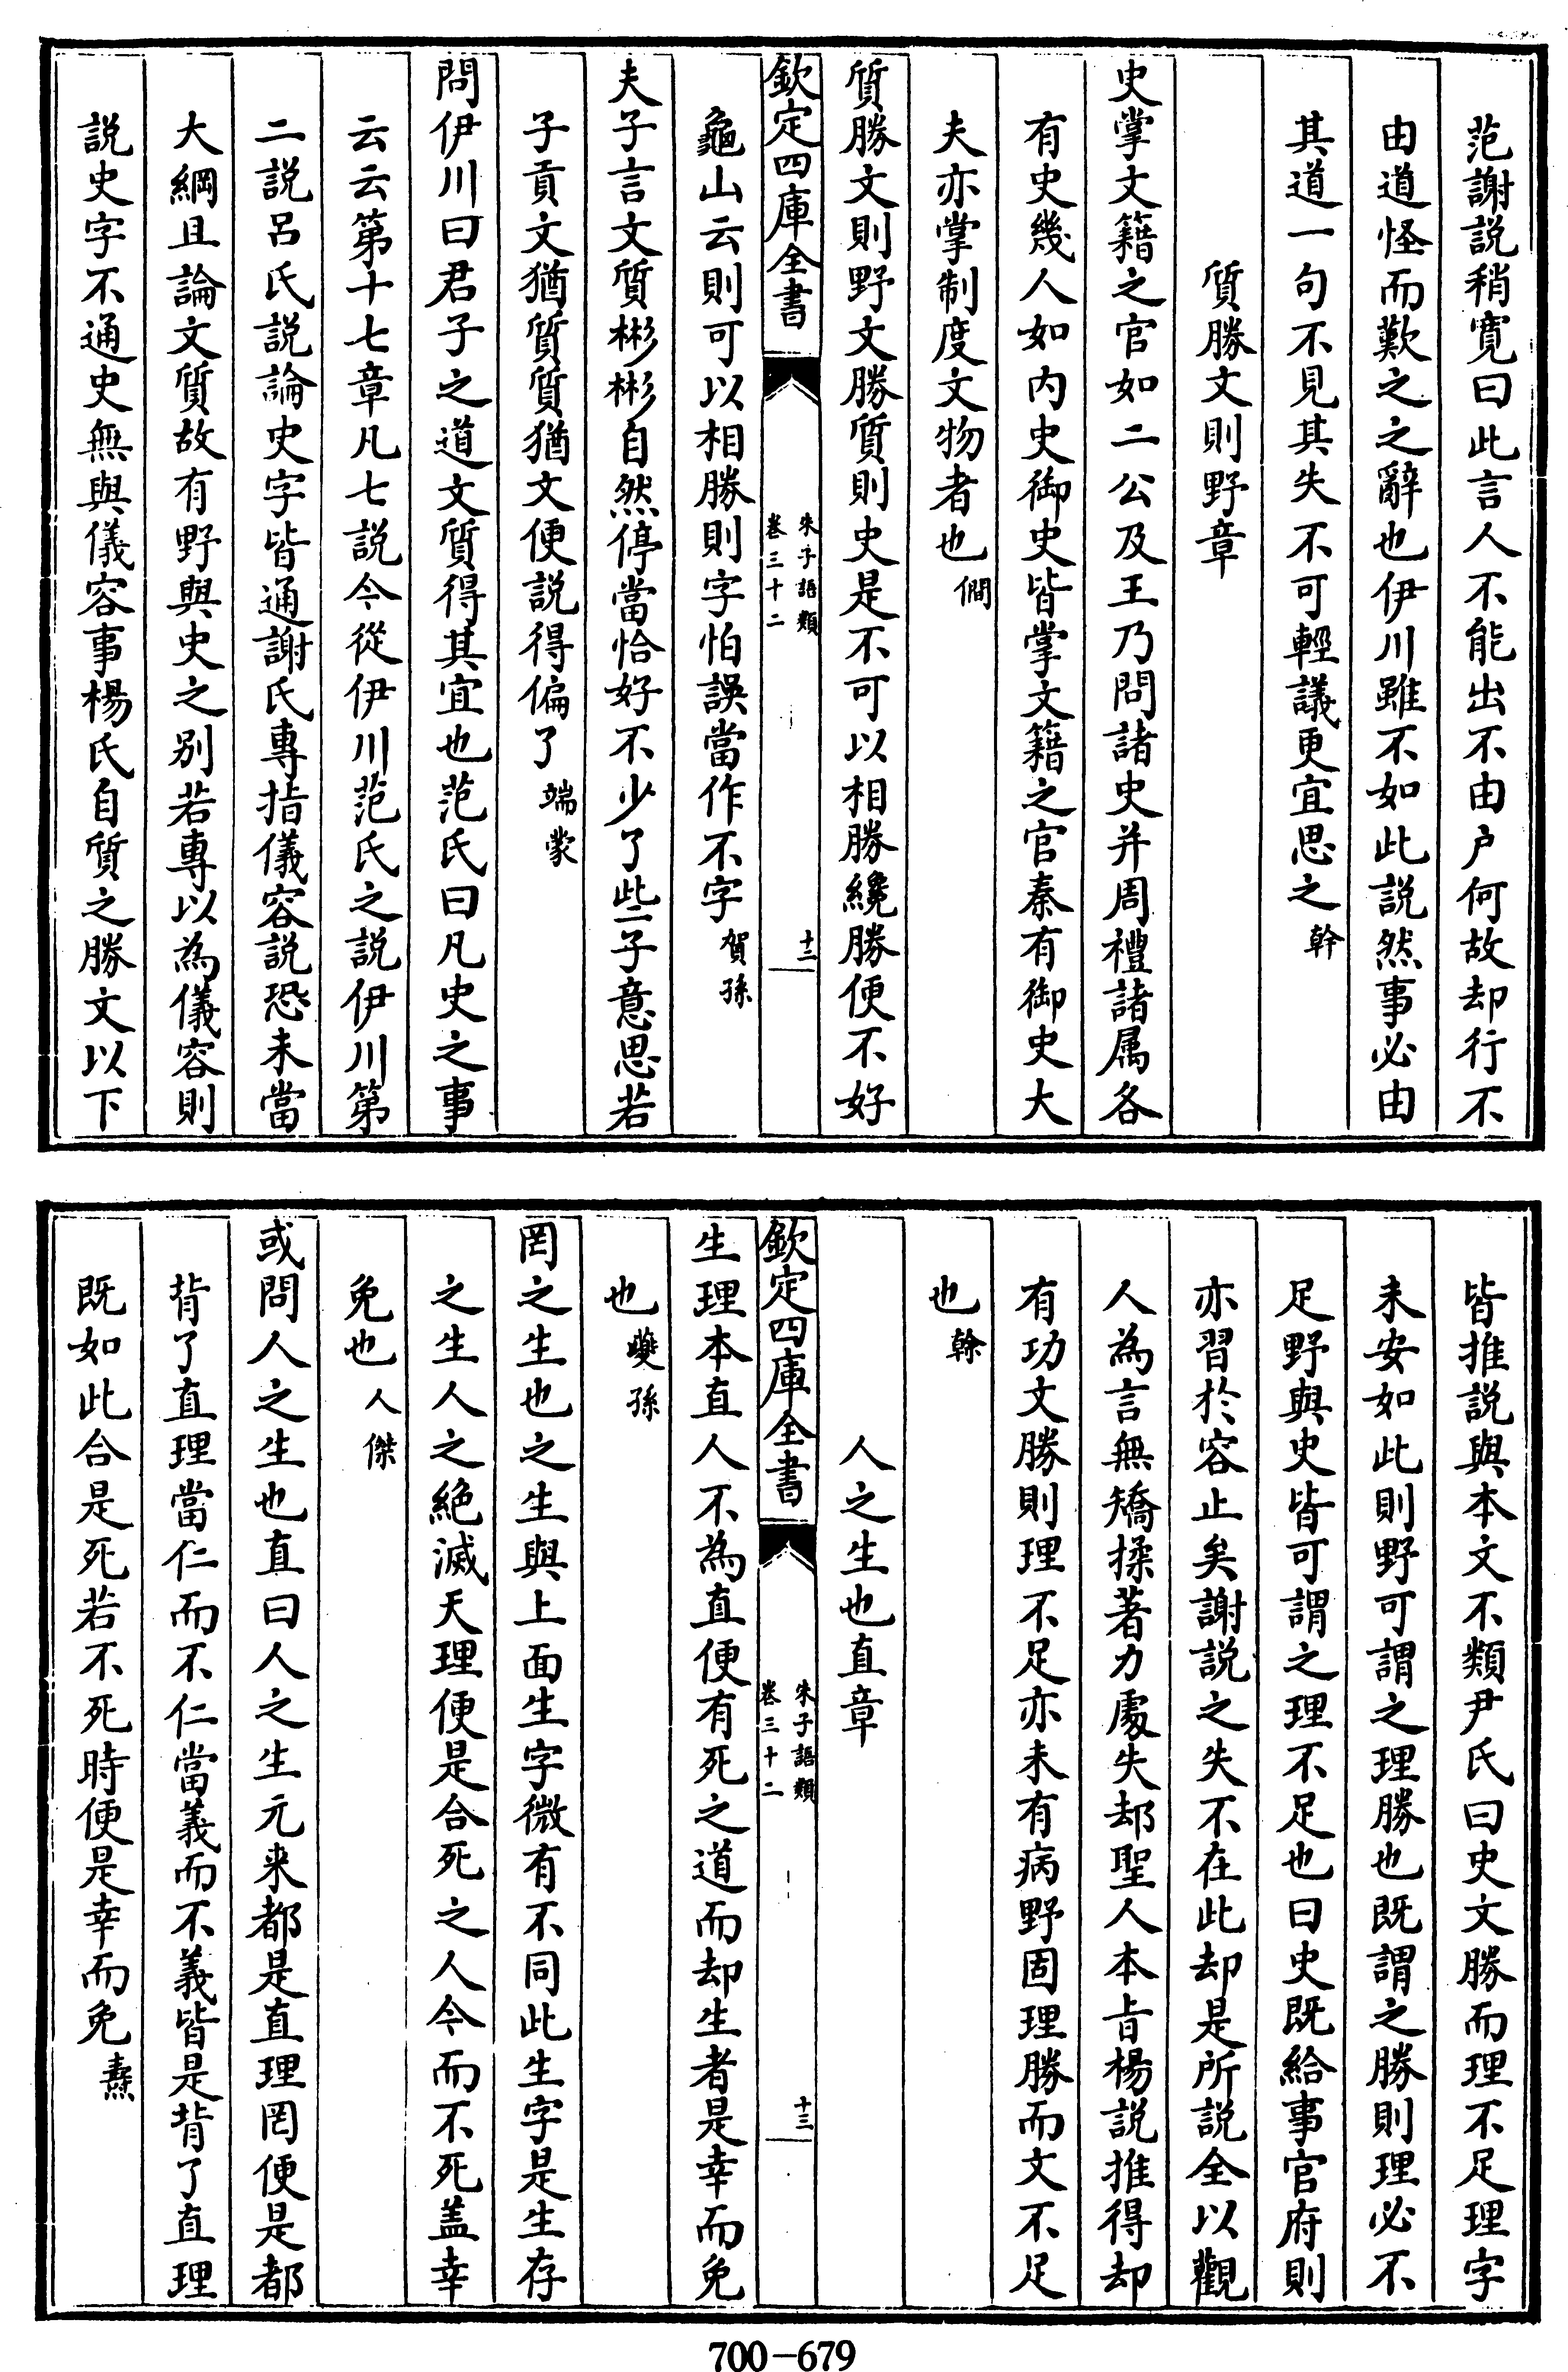 范謝説稍寛曰此言人不能出不由户何故却行不
由道怪而歎之之辭也伊川雖不如此説然事必由
其道一句不見其失不可輕議更宜思之榦
質勝文則野章
史掌文籍之官如二公及王乃問諸史并周禮諸属各
有史幾人如内史御史皆掌文籍之官秦有御史大
夫亦掌制度文物者也僩
質勝文則野文勝質則史是不可以相勝纔勝便不好
欽定四庫全書
朱子語類
卷三十二
十二
龜山云則可以相勝則字怕誤當作不字賀孫
夫子言文質彬彬自然停當恰好不少了些子意思若
子貢文猶質質猶文便説得偏了端蒙
問伊川曰君子之道文質得其宜也范氏曰凡史之事
云云第十七章凡七説今從伊川范氏之説伊川第
二説吕氏説論史字皆通謝氏專指儀容説恐未當
大綱且論文質故有野與史之别若專以為儀容則
説史字不通史無與儀容事楊氏自質之勝文以下
皆推説與本文不類尹氏曰史文勝而理不足理字
未安如此則野可謂之理勝也既謂之勝則理必不
足野與史皆可謂之理不足也曰史既給事官府則
亦習於容止矣謝説之失不在此却是所説全以觀
人為言無矯揉著力處失却聖人本旨楊説推得却
有功文勝則理不足亦未有病野固理勝而文不足
也榦
人之生也直章
欽定四庫全書
朱子語類
卷三十二
十三
生理本直人不為直便有死之道而却生者是幸而免
也夔孫
罔之生也之生與上面生字微有不同此生字是生存
之生人之絶滅天理便是合死之人今而不死盖幸
免也人傑
或問人之生也直曰人之生元来都是直理罔便是都
背了直理當仁而不仁當義而不義皆是背了直理
既如此合是死若不死時便是幸而免燾
700-679